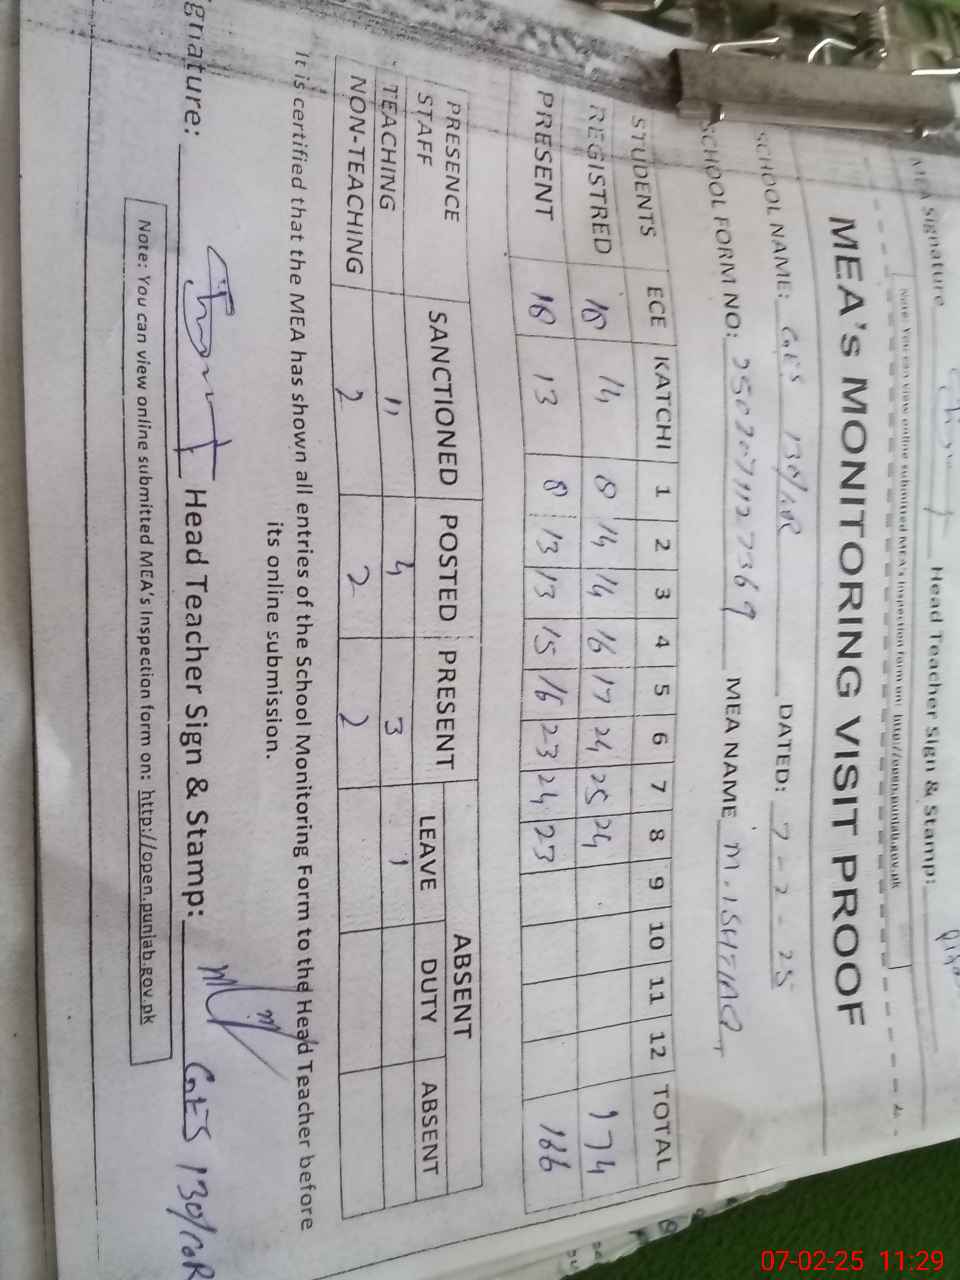 MEA Signature Head Teacher Sign & Stamp:
Note: You can view online submitted MEA's Inspection form on: http://open.punjab.gov.pk
MEA'S MONITORING VISIT PROOF
SCHOOL NAME: GES 130/10R DATED: 7-2-25
SCHOOL FORM NO: MEA NAME M. ISHTIAQ
STUDENTS ECE KATCHI 1 2 3 4 5 6 7 8 9 10 11 12 TOTAL
REGISTRED 18 14 8 14 14 16 17 24 25 24 174
PRESENT 18 13 8 13 13 15 16 23 24 23 166
PRESENCE STAFF SANCTIONED POSTED PRESENT ABSENT
LEAVE DUTY ABSENT
TEACHING 11 4 3 1
NON-TEACHING 2 2 2
It is certified that the MEA has shown all entries of the School Monitoring Form to the Head Teacher before
its online submission.
gnature: Head Teacher Sign & Stamp: GES 130/10R
Note: You can view online submitted MEA's Inspection form on: http://open.punjab.gov.pk
07-02-25 11:29